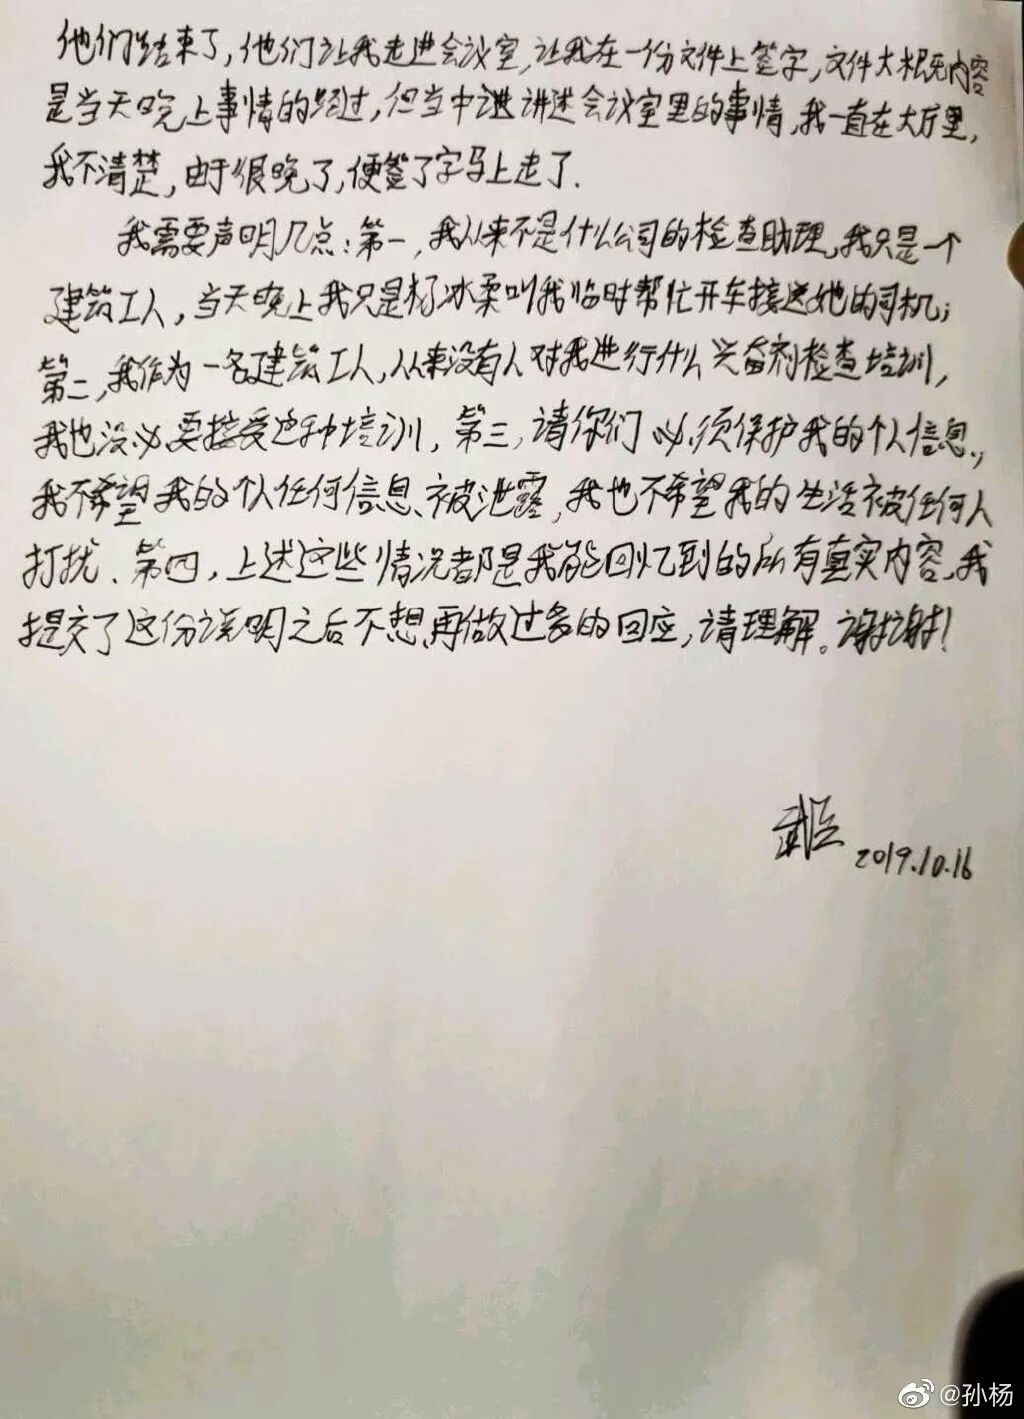 他们结束了，他们让我走进会议室，让我在一份文件上签字，文件大概内容
是当天晚上事情的经过，但当中讲述会议室里的事情，我一直在大厅里，
我不清楚，由于很晚了，便签了字马上走了．
我需要声明几点：第一，我从来不是什么公司的检查助理，我只是一个
建筑工人，当天晚上我只是杨冰柔叫我临时帮忙开车接送她的司机；
第二，我作为一名建筑工人，从来没有人对我进行什么兴奋剂检查培训，
我也没必要接受这种培训，第三，请你们必须保护我的个人信息，
我不希望我的个人任何信息被泄露，我也不希望我的生活被任何人
打扰．第四，上述这些情况都是我能回忆到的所有真实内容，我
提交了这份说明之后不想再做过多的回应，请理解。谢谢！
2019.10.16
@孙杨